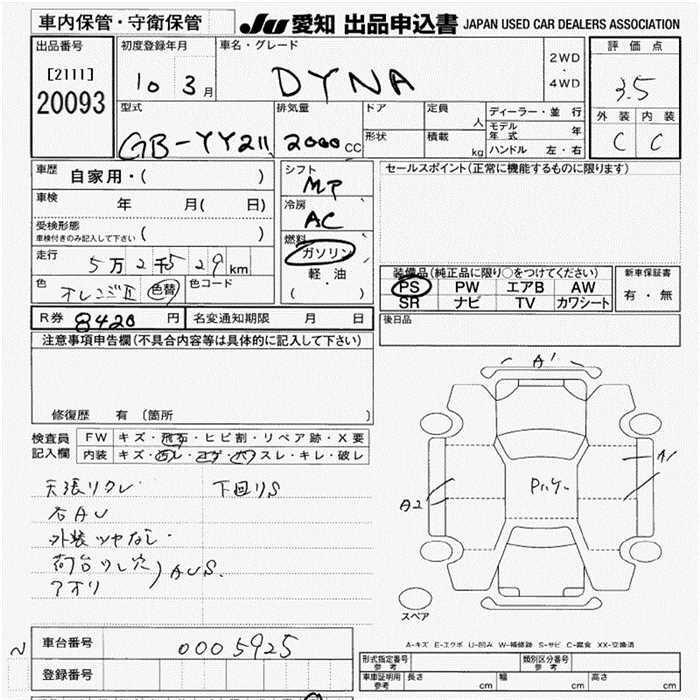 車内保管・守衛保管
JU 愛知 出品申込書 JAPAN USED CAR DEALERS ASSOCIATION
出品番号
[2111]
20093
初度登録年月
10 3月
車名・グレード
DYNA
2WD
・
4WD
評価点
3.5
外装 内装
C C
型式
GB-YY211
排気量
2000cc
ドア
定員
人
形状
積載
kg
ディーラー・並行
モデル年式 年
ハンドル 左・右
車歴
自家用・( )
車検 年 月( 日)
受検形態
車検付きのみ記入して下さい ( )
走行
5万2千529km
色
色替
色コード
シフト
MT
冷房
AC
燃料
ガソリン
軽・油
( )
セールスポイント(正常に機能するものに限ります)
装備品(純正品に限り○をつけてください)
PS PW エアB AW
SR ナビ TV カワシート
新車保証書
有・無
R券 8420円
名変通知期限 月 日
後日品
注意事項申告欄(不具合内容等は具体的に記入して下さい)
修復歴 有 〔箇所 〕
検査員記入欄
FW キズ・飛石・ヒビ割・リペア跡・X要
内装 キズ・スレ・コゲ・穴 スレ・キレ・破レ
下回りS
右AU
外装ツヤなし・
荷台ツレ穴
アオリ
AUS.
A1
A1
A2
スペア
A-キズ E-エクボ U-凹み W-補修跡 S-サビ C-腐食 XX-交換済
車台番号
0005925
登録番号
形式指定番号
参考
類別区分番号
参考
車庫証明用
参考
長さ cm
幅 cm
高さ cm